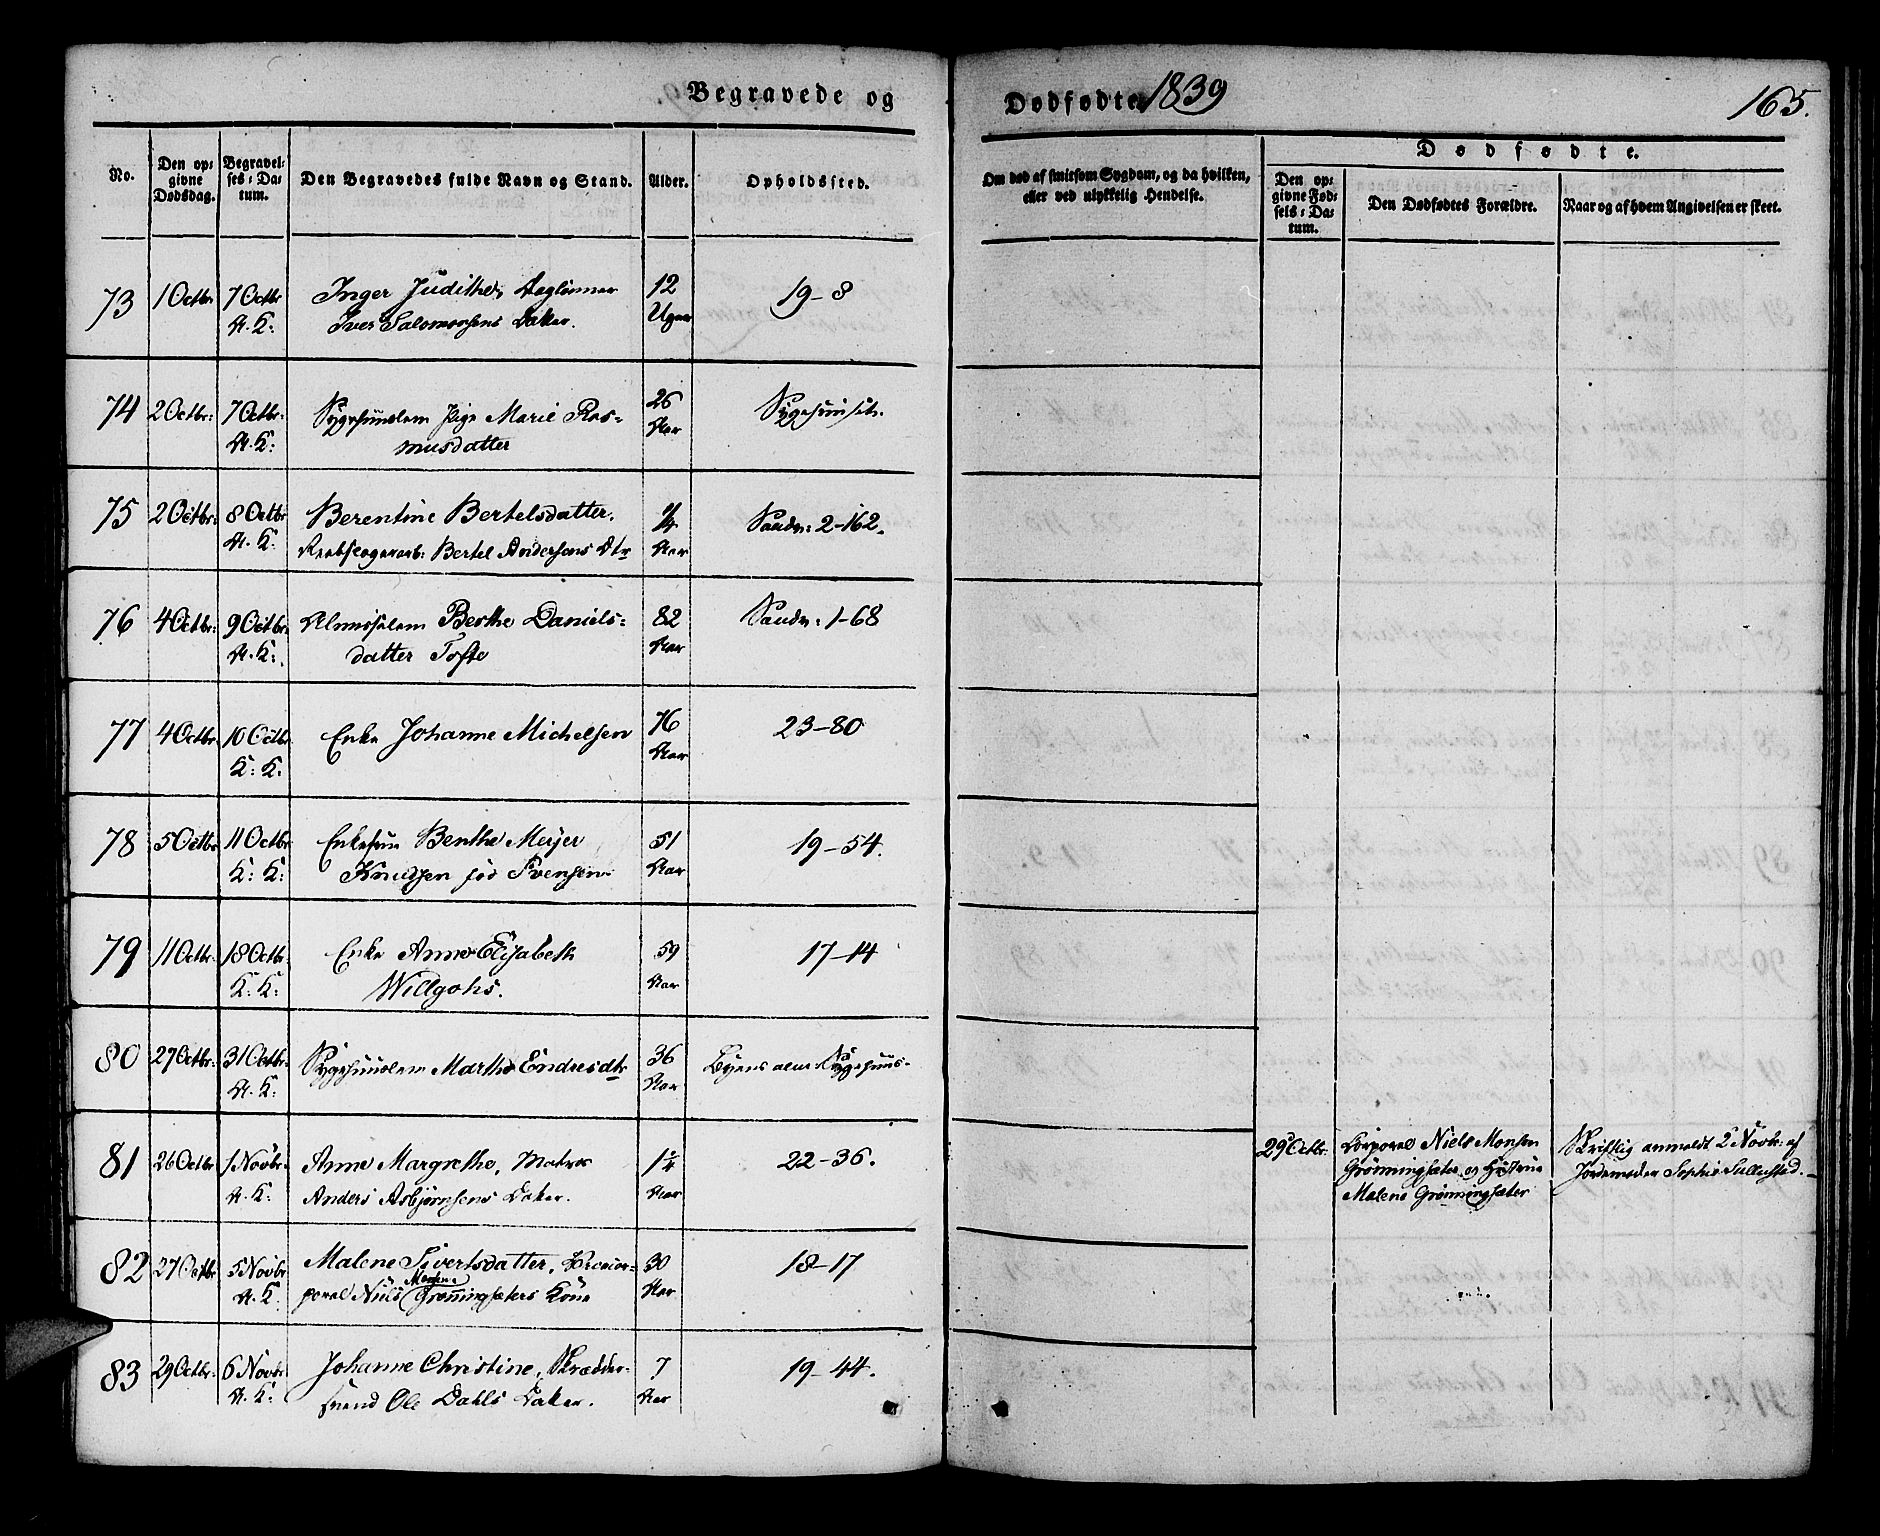 Begravede og
Dødfødte 1839
165.
No.
Den opgivne Dødsdag.
Begravelses-Datum.
Den Begravedes fulde Navn og Stand.
Alder.
Opholdssted.
Om død af smitsom Sygdom, og da hvilken, eller ved ulykkelig Hendelse.
Dødfødte.
Den opgivne Fødsels-Datum.
Den Dødfødtes Forældre.
Naar og af hvem Angivelsen er skeet.
73 1 Octbr 7 Octbr Inger Judithe, Dagleiner 12 19-8
A. K: Iver Salomonsens Datter. Uger
74 2 Octbr: 7 Octbr: Sygehuuslem Pige Marie Ras= 26 Sygehuuset.
A. K: musdatter Aar
75 2 Octbr: 8 Octbr Berentine Bertelsdatter. Sandv: 2-162.
A. K: Bertel Andersens Dtr Aar
76 4 Octbr: 9 Octbr: Almuslem Berthe Daniels= 82 Sandv: 1-68
A. K: datter Tofte Aar
77 4 Octbr. 10 Octbr. Enke Johanne Michelsen 76 23-80
K: K: Aar
78 5 Octbr 11 Octbr Enkefru Benthe Meyer 51 19-54.
K: K: Knudsen fød Svensen Aar
79 11 Octbr. 18 Octbr: Enke Anne Elisabeth 59 17-14
K: K: Willgohs. Aar
80 27 Octbr: 31 Octbr: Sygehuuslem Marthe Endresdtr 36 Byens alm: Sygehuus-
A. K: Aar
81 26 Octbr 1 Novbr. Anne Margrethe, Matros 1¼ 22-36.
A. K: Anders Asbjørnsens Datter. Aar
29 Octbr. Corporal Niels Monsen
Grønningsæter og Hustrue
Malene Grønningsæter
Skriftlig anmeldt 2 Novbr: af
Jordemoder Sophie Tullestad.
82 27 Octbr 5 Novbr Malene Sivertsdatter, 30 18-17
A. K: poral Niels Monsen Grønningsæters Kone Aar
83 29 Octbr: 6 Novbr Johanne Christine, Skrædder= 7 19-44.
A. K: svend Ole Dahls Datter. Aar